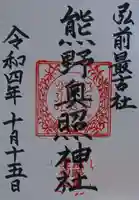 弘前最古社
熊野奥照神社
令和四年十月十五日